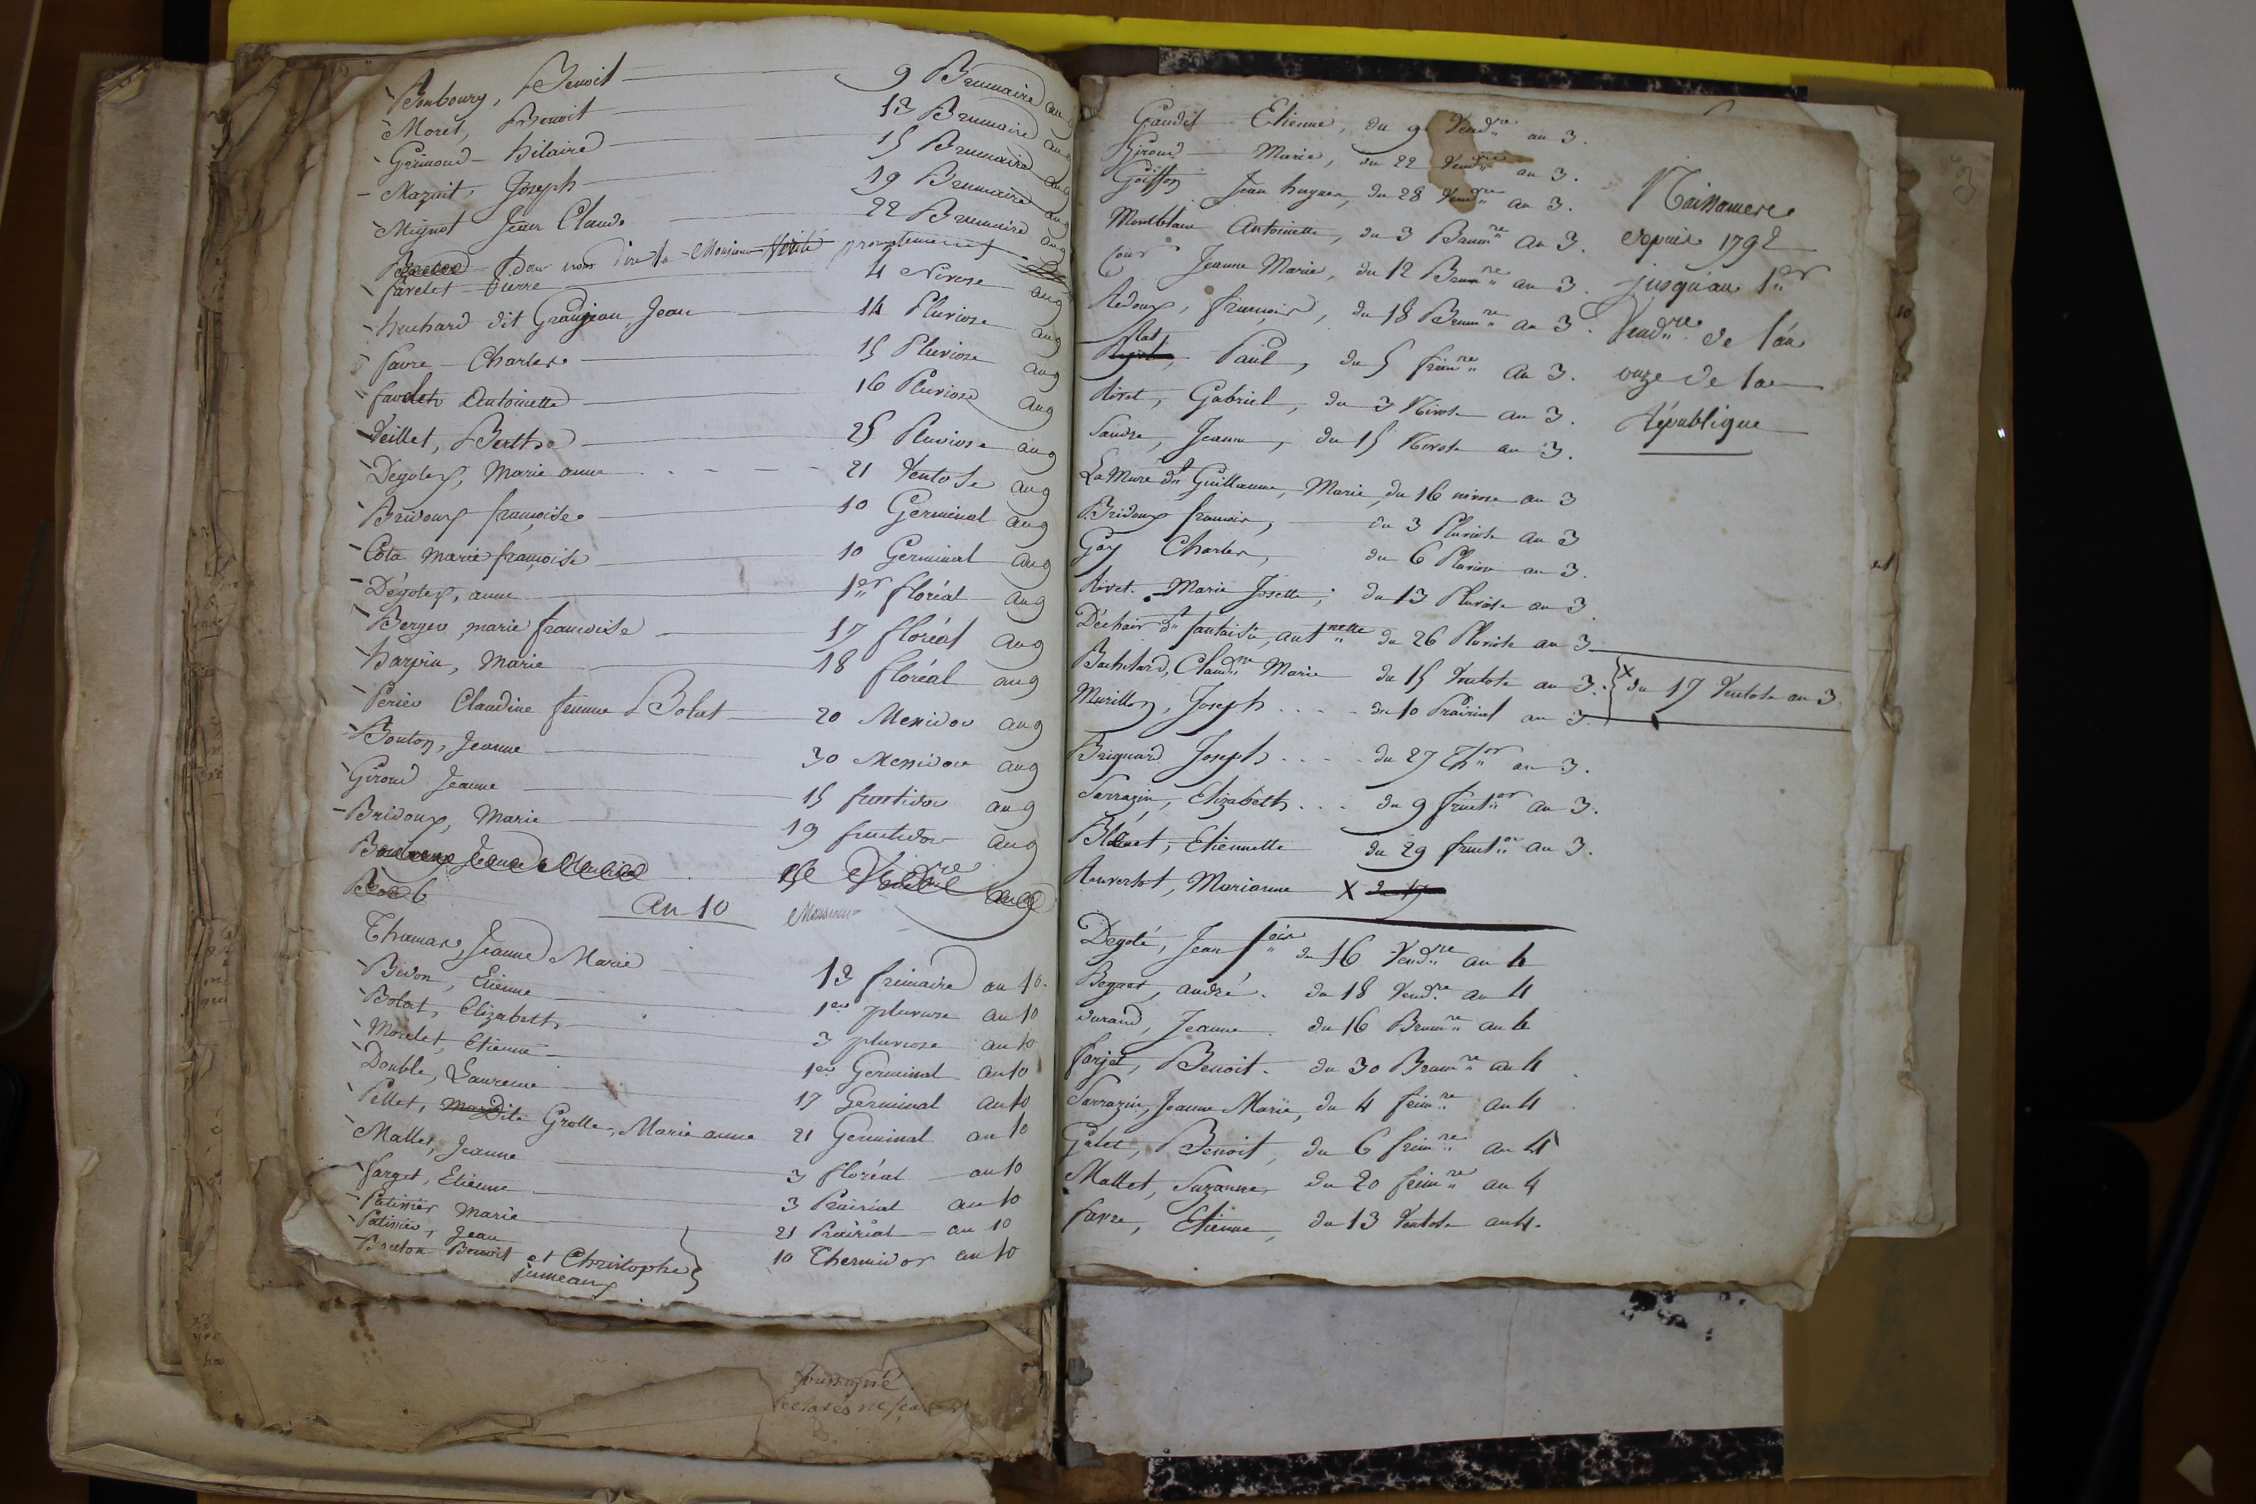 Bonboury, Benoit 9 Brumaire an 9
Moret, Benoit 13 Brumaire an 9
Germond Hilaire 15 Brumaire an 9
Mazuit, Joseph 19 Brumaire an 9
Mignot Jean Claude 22 Brumaire an 9
pour vous dire Monsieur promptement
favelet Pierre 4 Nivose an 9
huchard dit Grandjean Jean 14 Pluviose an 9
favre Charles 15 Pluviose an 9
favelet Antoinette 16 Pluviose an 9
Veillet, Berthe 25 Pluviose an 9
Degoley, Marie anne 21 Ventose an 9
Bridoux françoise 10 Germinal an 9
Cota marie françoise 10 Germinal an 9
Dégoley, anne 1er floréal an 9
Berger marie francoise 17 floréal an 9
harpin, Marie 18 floréal an 9
Perier Claudine femme Bolat 20 Messidor an 9
Bouton, Jeanne 30 Messidor an 9
Giroud Jeanne 15 fructidor an 9
Bridoux, Marie 19 fructidor an 9
Jeanne Vendre an
An 10 Monsieur
Thomas, Jeanne Marie 13 frimaire an 10.
Bidon, Etienne 1er pluviose an 10
Bolat, Elizabeth 3 pluviose an 10
Morelet, Etienne 1er Germinal an 10
Double, Laurence 17 Germinal an 10
Pellet, Dite Grolle, Marie anne 21 Germinal an 10
Mallet, Jeanne 3 floréal an 10
farget, Etienne 3 Prairial an 10
Patissier Marie 21 Prairial an 10
Patissier, Jean 10 Thermidor an 10
Breton Benoit et Christophe
jumeaux
Gaudit Etienne, du 9 Vendre an 3.
Giroud Marie, du 22 Vendre an 3.
Goiffon Jean hugues, du 28 Vendre an 3.
Montblanc Antoinette, du 3 Brumre an 3.
Cour Jeanne Marie, du 12 Brumre an 3.
Redoux, françois, du 18 Brumre an 3.
Paul, du 5 frimre an 3.
Rivet, Gabriel, du 3 Nivose an 3.
Sandre, Jeanne, du 15 Nivose an 3.
LaMure dit Guillaume, Marie, du 16 nivose an 3
Bridoux francois, du 3 Pluviose an 3
Gay Charles, du 6 Pluviose an 3.
Rivet. Marie Josette, du 13 Pluviose an 3
Déchair dit fantaisie, antnette du 26 Pluviose an 3
Bachelard, Claudne Marie du 15 Ventose an 3. X du 17 Ventose an 3
Murillon, Joseph .... du 10 Prairial an 3.
Briguard Joseph .... du 27 Thor an 3.
Sarrazin, Elizabeth ... du 9 fructor an 3.
Blanet, Etiennette du 29 fructor an 3.
Rouvertot, Marianne X du 17
Degolé, Jean fcois du 16 Vendre an 4
Beynet, andré. du 18 Vendre an 4
durand, Jeanne. du 16 Brumre an 4
farjet, Benoit. du 30 Brumre an 4
Sarrazin, Jeanne Marie, du 4 frimre an 4
Galet, Benoit, du 6 frimre an 4
Mallet, Suzanne, du 20 frimre an 4
favre, Etienne, du 13 Ventose an 4.
Naissances
depuis 1792
jusqu'au 1er
Vendre de l'an
onze de la
République